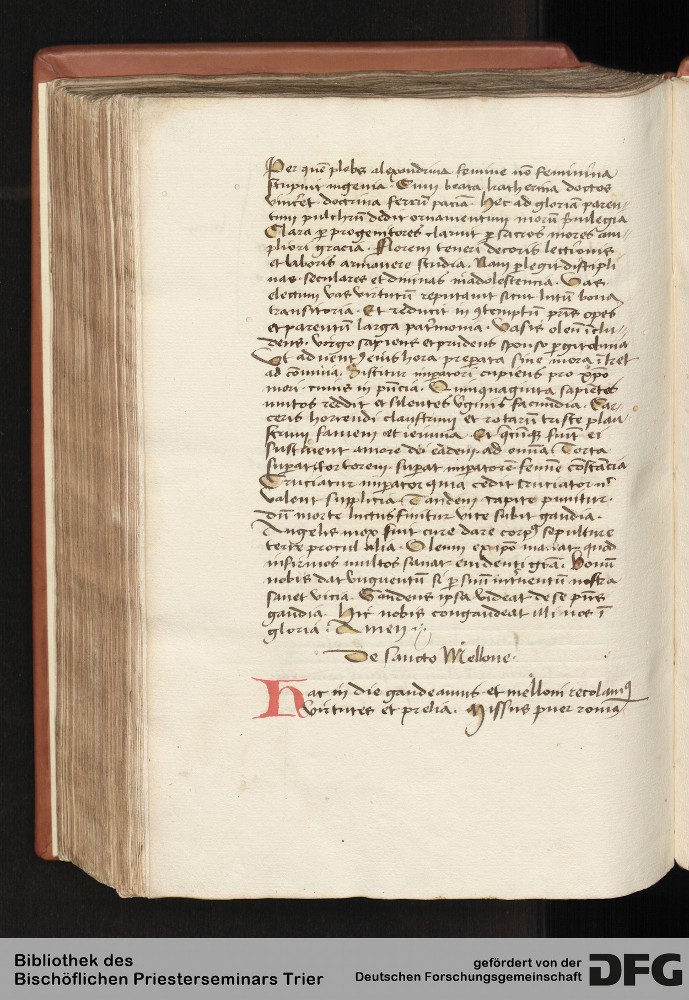 Per quē plebs alexandrina femine nō feminina
stupuit ingenia. Cum beata katherina doctos
vinceret doctrina ferrū paciā. Hec ad gloriā paren-
tum pulchrū dedit ornamentum morū p̄uilegia
Clara p progenitores claruit p sacros mores am-
pliori gracia. Florem teneri decoris lectionis
et laboris armauere studia. Nam plegit discipli
nas seculares et diuinas in adolescencia. Vas
electum vas virtutū reputauit sicut lutū bona
transitoria. Et reduxit in ꝯtemptū pr̄is opes
et parentū larga patrimonia. Vasis oleū īclu-
dens virgo sapiens et prudens sponso pgit obuia
Vt aduentꝰ eius hora preparata sine mora ītret
ad cōuiuia. Sistitur impatori cupiens pro xp̄o
mori cuius in p̄ncia. Quinquaginta sapiētes
mutos reddit et silentes v̄ginis facundia. Car-
ceris horrendi claustrum et rotarū triste plau
strum famem et ieiunia. Et quecūqꝫ fiūt ei
sustinuit amore dei eadem ad omnia Torta
superat tortorem supat impatorē femine cōstācia
Cruciatur impator quia cedit cruciator nec
valent supplicia Tandem capite punitur
dū morte luctus finitur vite subit gaudia.
Angelis mox fuit cure dare corpꝰ sepulture
terre procul alia. Oleum ex ip̄o manat quod
infirmos multos sanat euidenti grā. Bonū
nobis dat vnguentū si p suū int̄uentū nostra
sanet vicia. Gaudens ipsa videat de se p̄ns
gaudia. Hic nobis congaudeat illi nos ī
gloria. Amen
De sancto Mellone.
Hac in die gaudeamus et melloni recolamꝰ
virtutes et prelia. Missus puer romā
Bibliothek des
Bischöflichen Priesterseminars Trier
gefördert von der
Deutschen Forschungsgemeinschaft
DFG